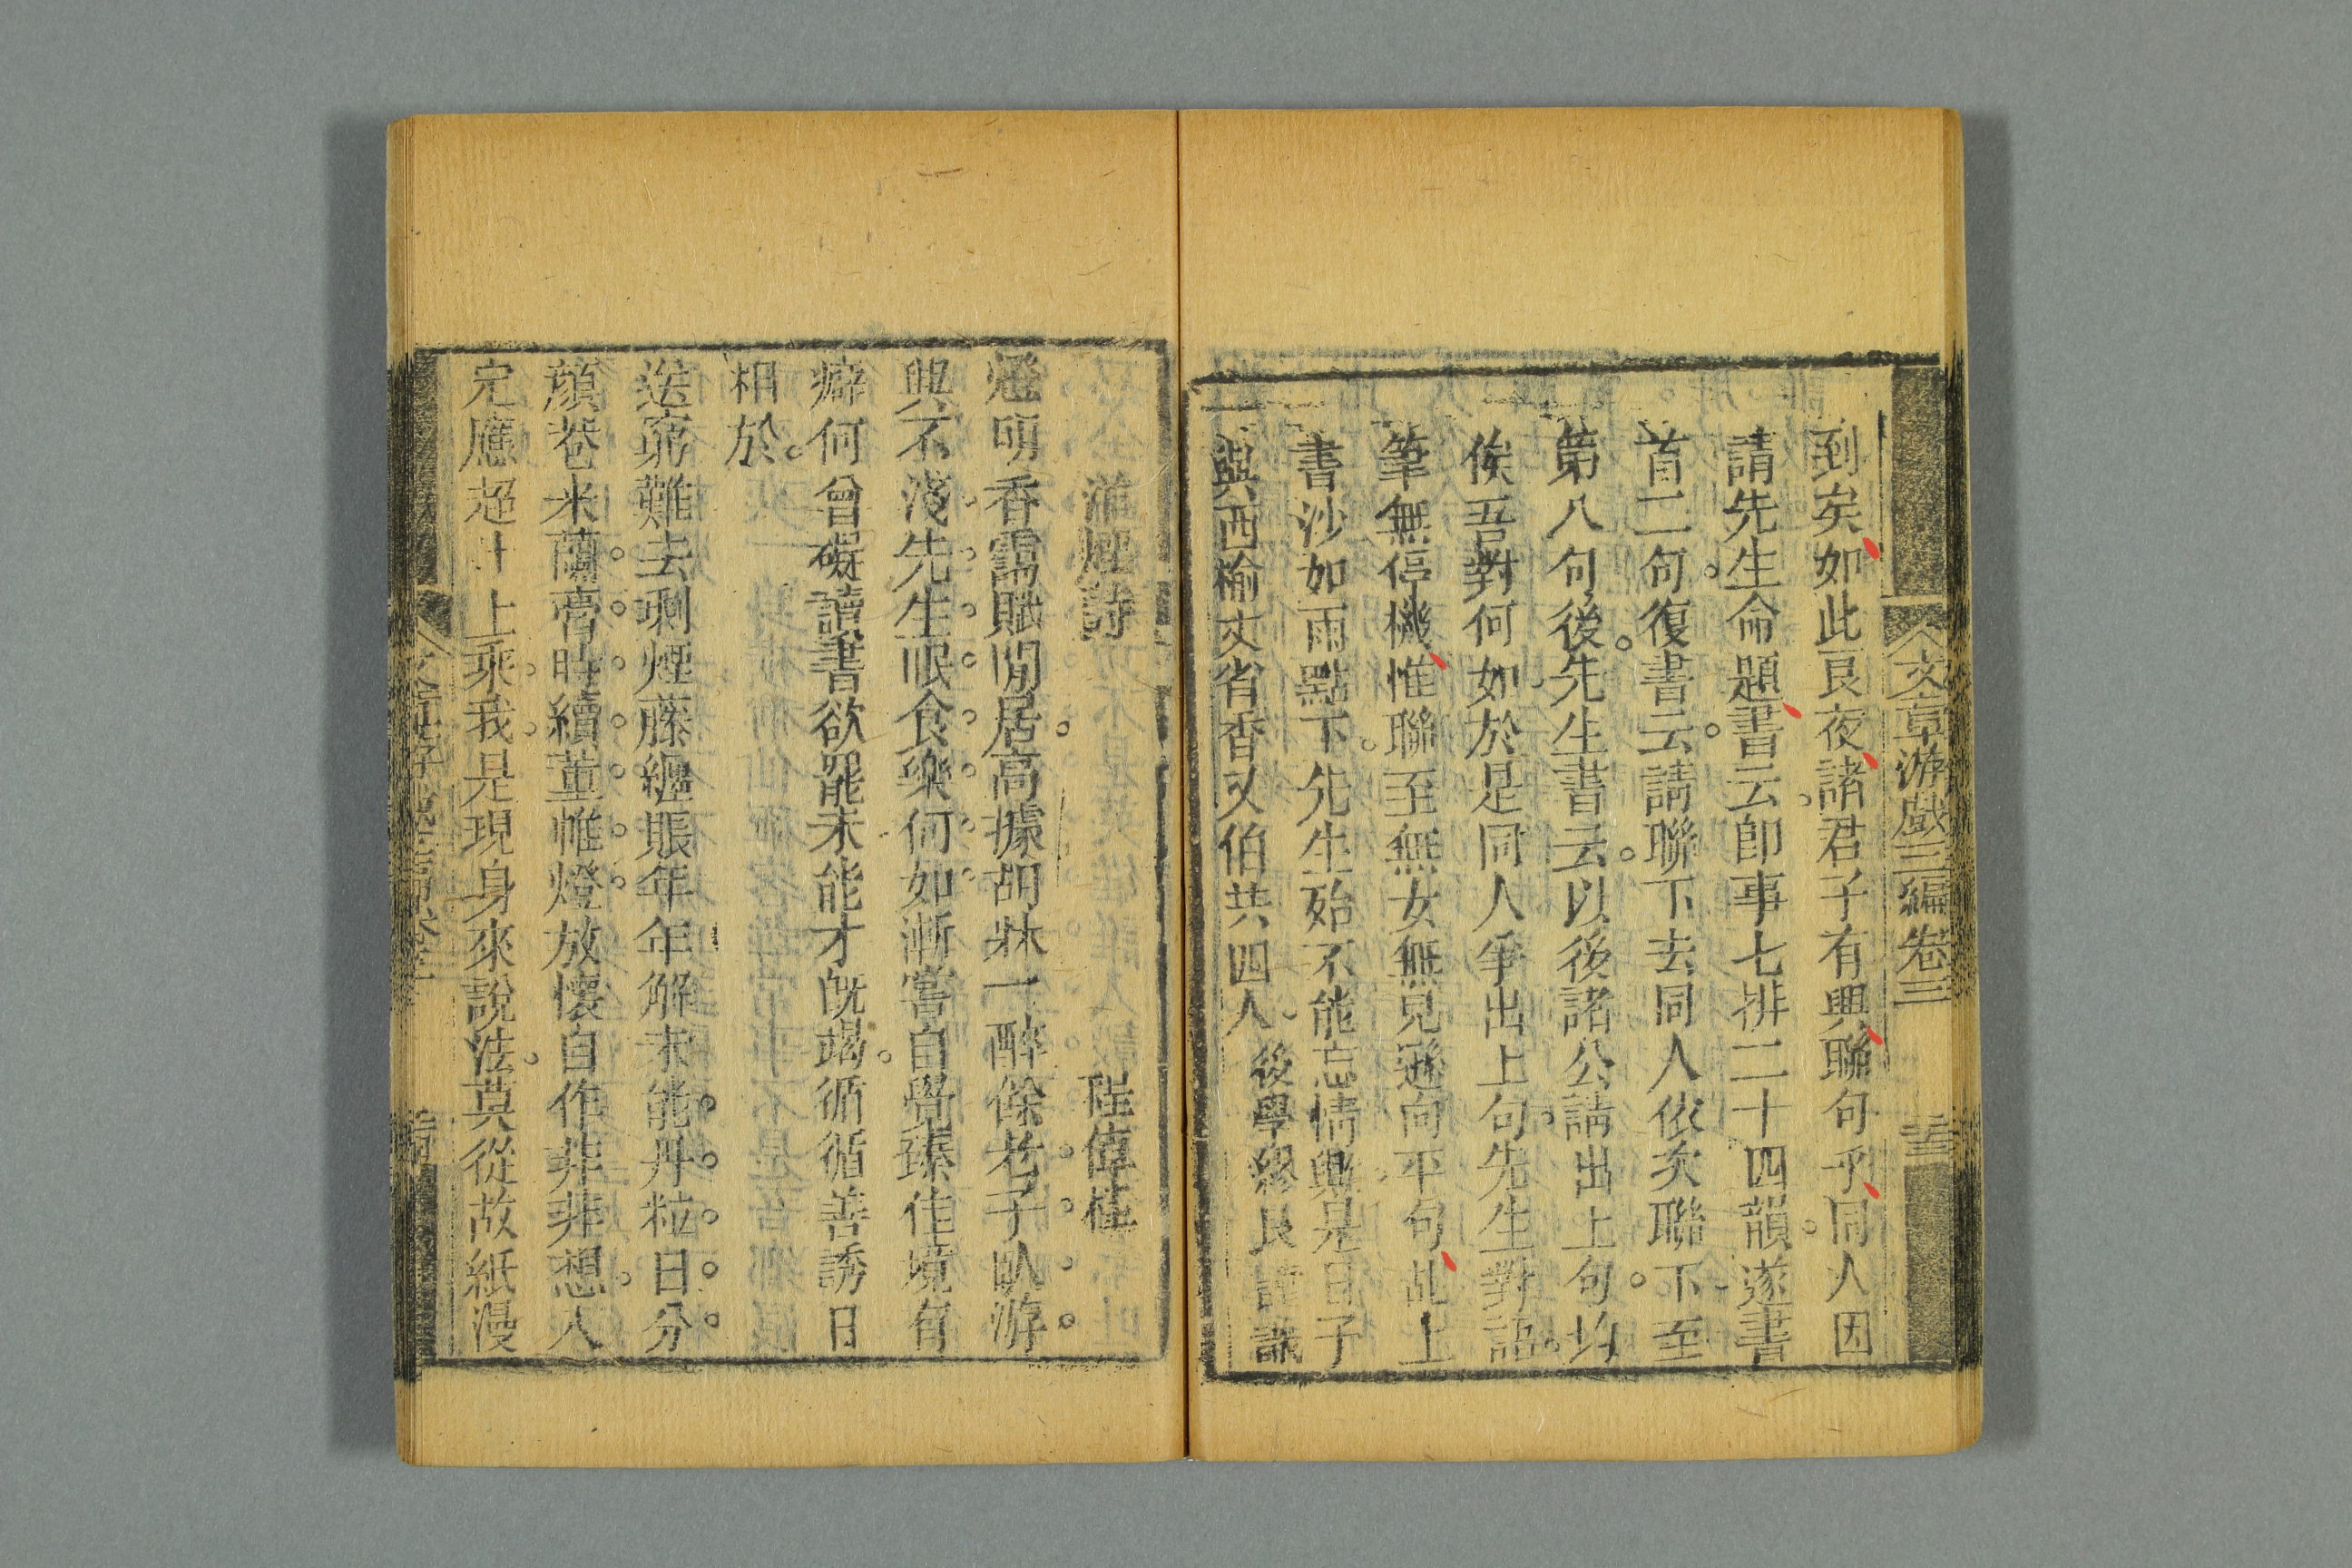 文章游戲三編卷三
到矣如此良夜諸君子有興聯句乎同人因
請先生命題書云卽事七排二十四韻遂書
首二句復書云請聯下去同人依次聯下至
第八句後先生書云以後諸公請出上句均
俟吾對何如於是同人爭出上句先生對語
筆無停機惟聯至無女無兒遜向平句乩上
書沙如雨點下先生殆不能忘情與是日予
與西榆丈省香又伯共四人
後學繆艮謹識
洋煙詩
程
燈明香靄賦閒居高據胡牀一醉餘老子臥游
興不淺先生眠食樂何如漸嘗自覺臻佳境有
癖何曾礙讀書欲罷未能才既竭循循善誘日
相於
送窮難去剩煙藤纏賬年年解未能丹粒日分
顏巷米蘭膏時續董帷燈放懷自作非非想入
定應超上上乘我是現身來說法莫從故紙漫